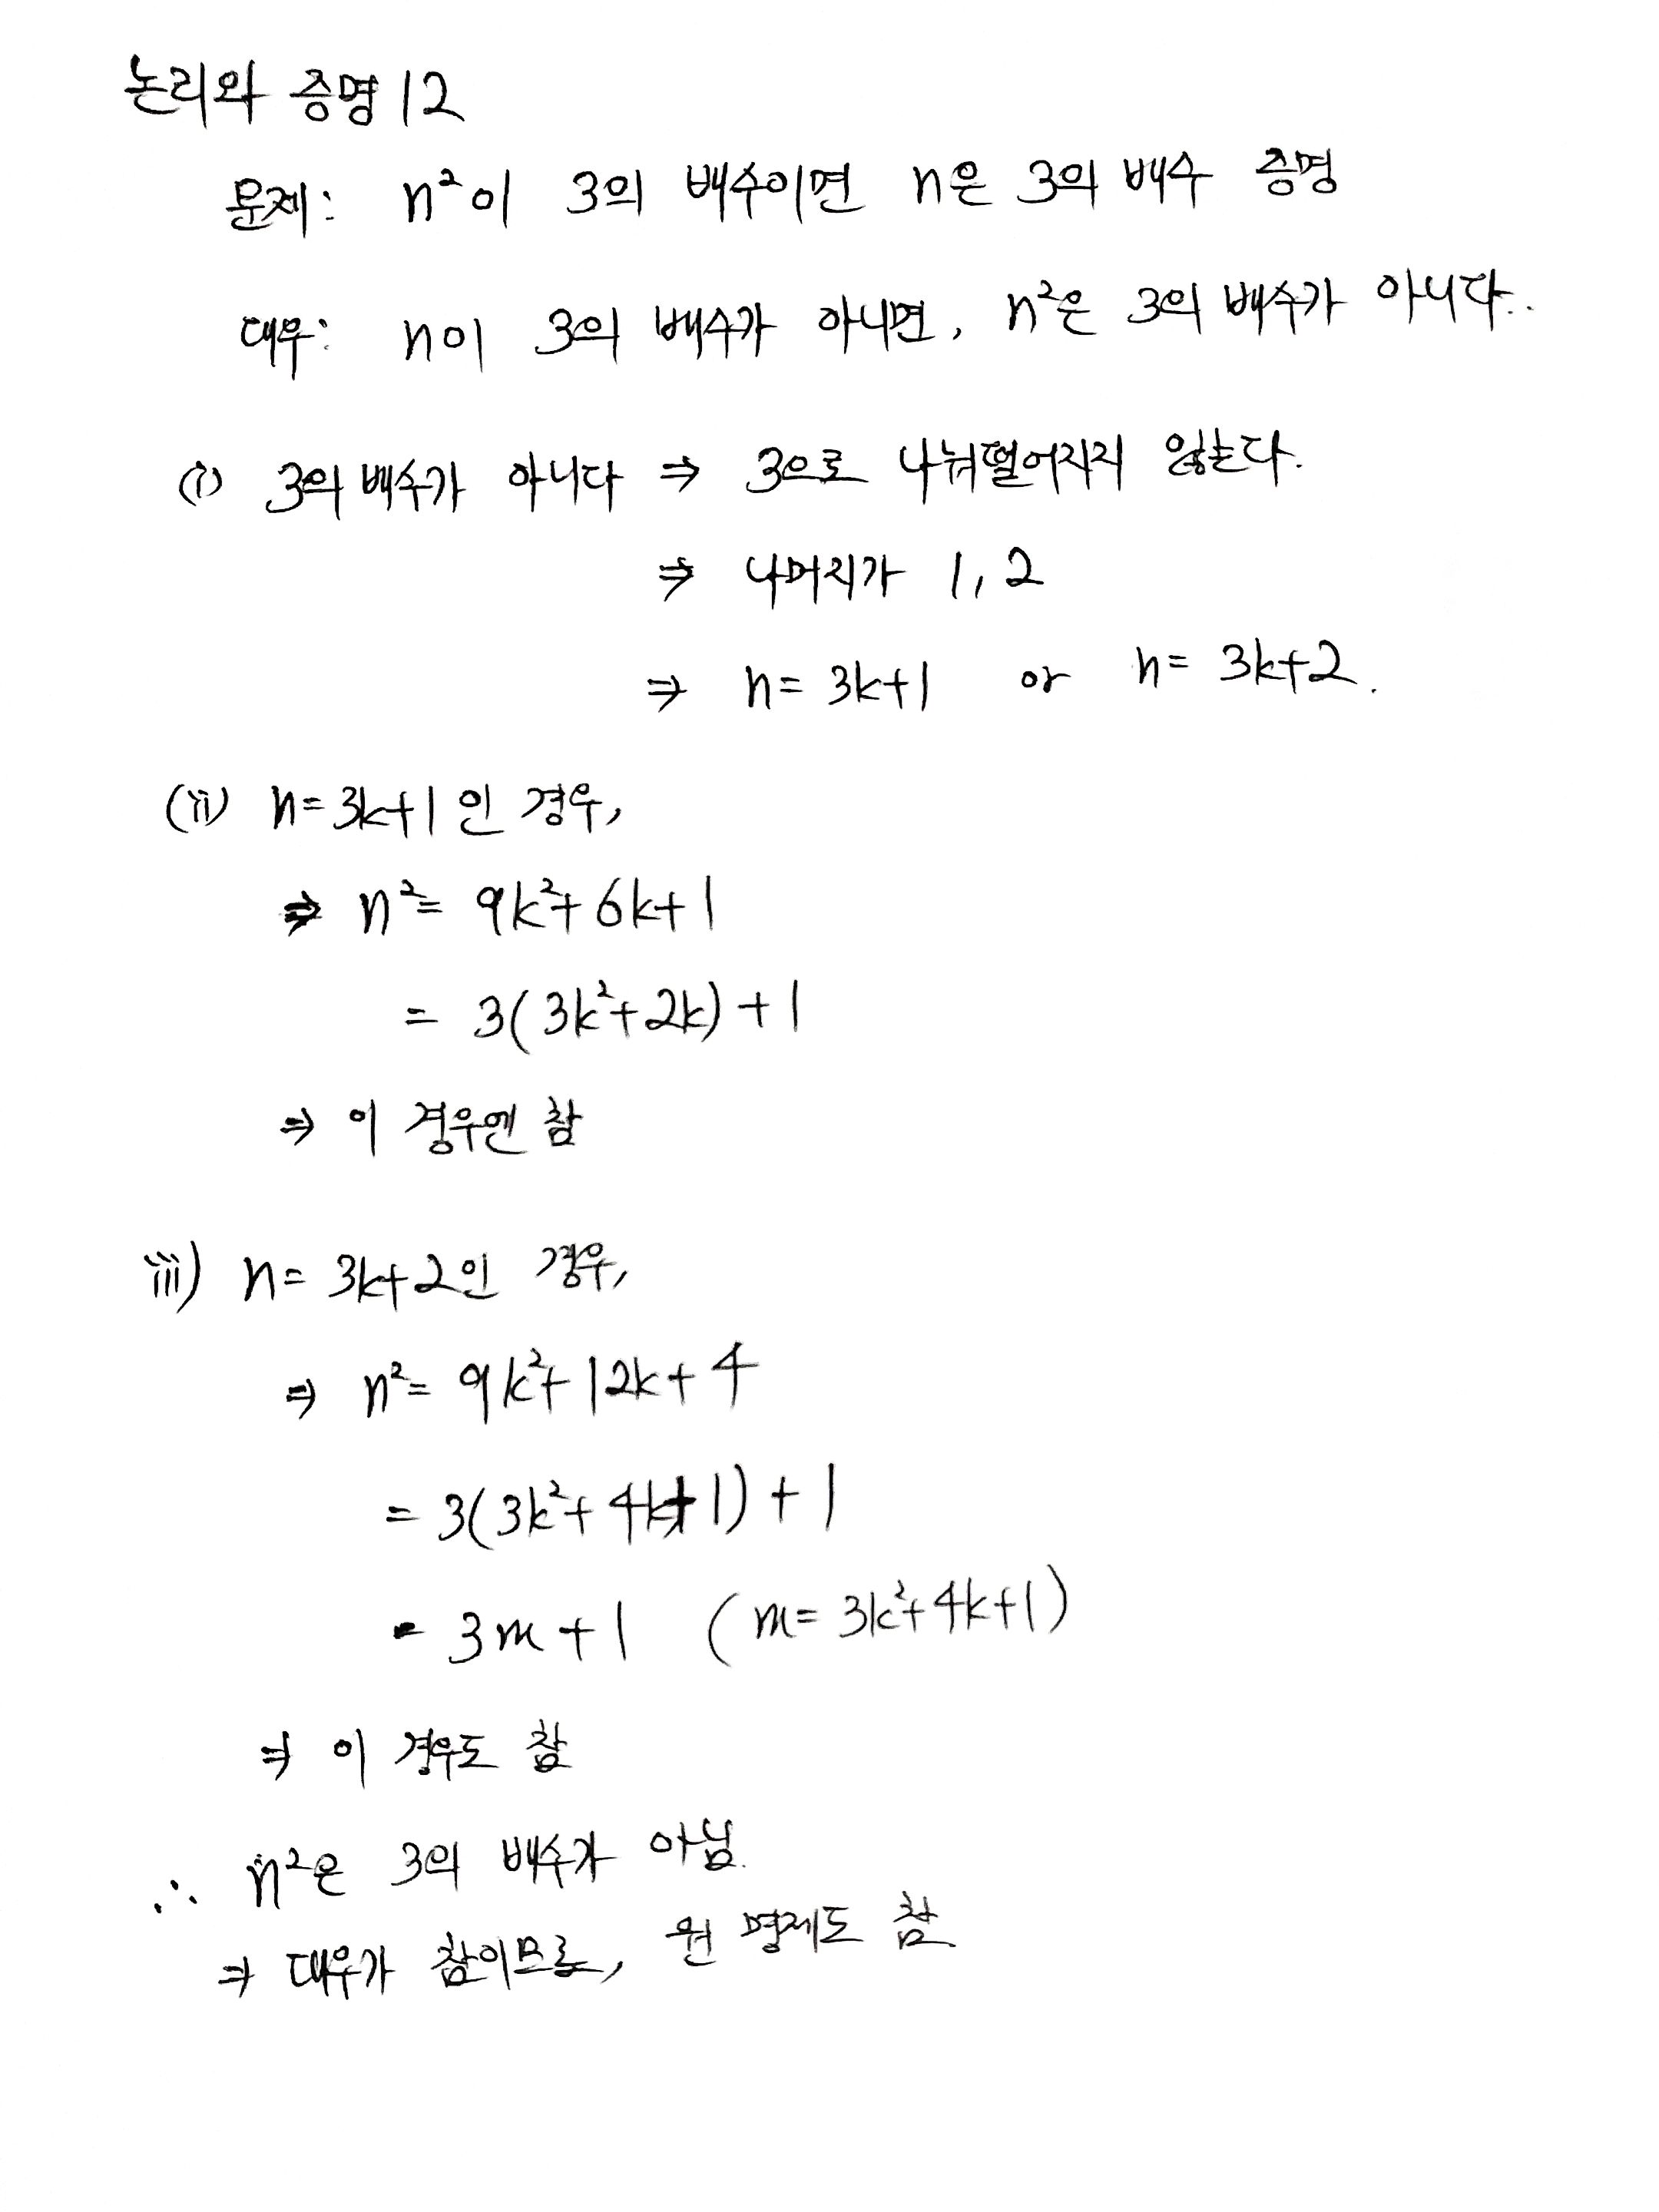 논리와 증명 12
문제: n²이 3의 배수이면 n은 3의 배수 증명
대우: n이 3의 배수가 아니면, n²은 3의 배수가 아니다..
(i) 3의 배수가 아니다 ⇒ 3으로 나눠떨어지지 않는다.
⇒ 나머지가 1, 2
⇒ n = 3k+1 or n = 3k+2.
(ii) n = 3k+1 인 경우,
⇒ n² = 9k²+6k+1
= 3(3k²+2k)+1
⇒ 이 경우엔 참
iii) n = 3k+2인 경우,
⇒ n² = 9k²+12k+4
= 3(3k²+4k+1)+1
= 3m+1 (m = 3k²+4k+1)
⇒ 이 경우도 참
∴ n²은 3의 배수가 아님.
⇒ 대우가 참이므로, 원 명제도 참